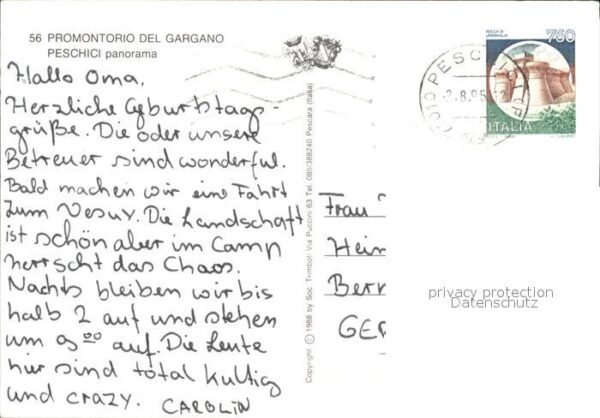 56 PROMONTORIO DEL GARGANO
PESCHICI panorama
Hallo Oma.
Herzliche Geburtstags-
grüße. Die oder unsere
Betreuer sind wonderful.
Bald machen wir eine Fahrt
zum Vesuv. Die Landschaft
ist schön aber im Camp
herrscht das Chaos.
Nachts bleiben wir bis
halb 2 auf und stehen
um 9.00 auf. Die Leute
hier sind total kultig
und crazy. CAROLIN
Copyright © 1988 by Soc. Trimboli-Via Puccini 63 Tel. 085/388240 Pescara (Italia)
ROCCA DI
URBISAGLIA
750
ITALIA
PESC
.8.95
Frau
Hein
Berr
GER
privacy protection
Datenschutz